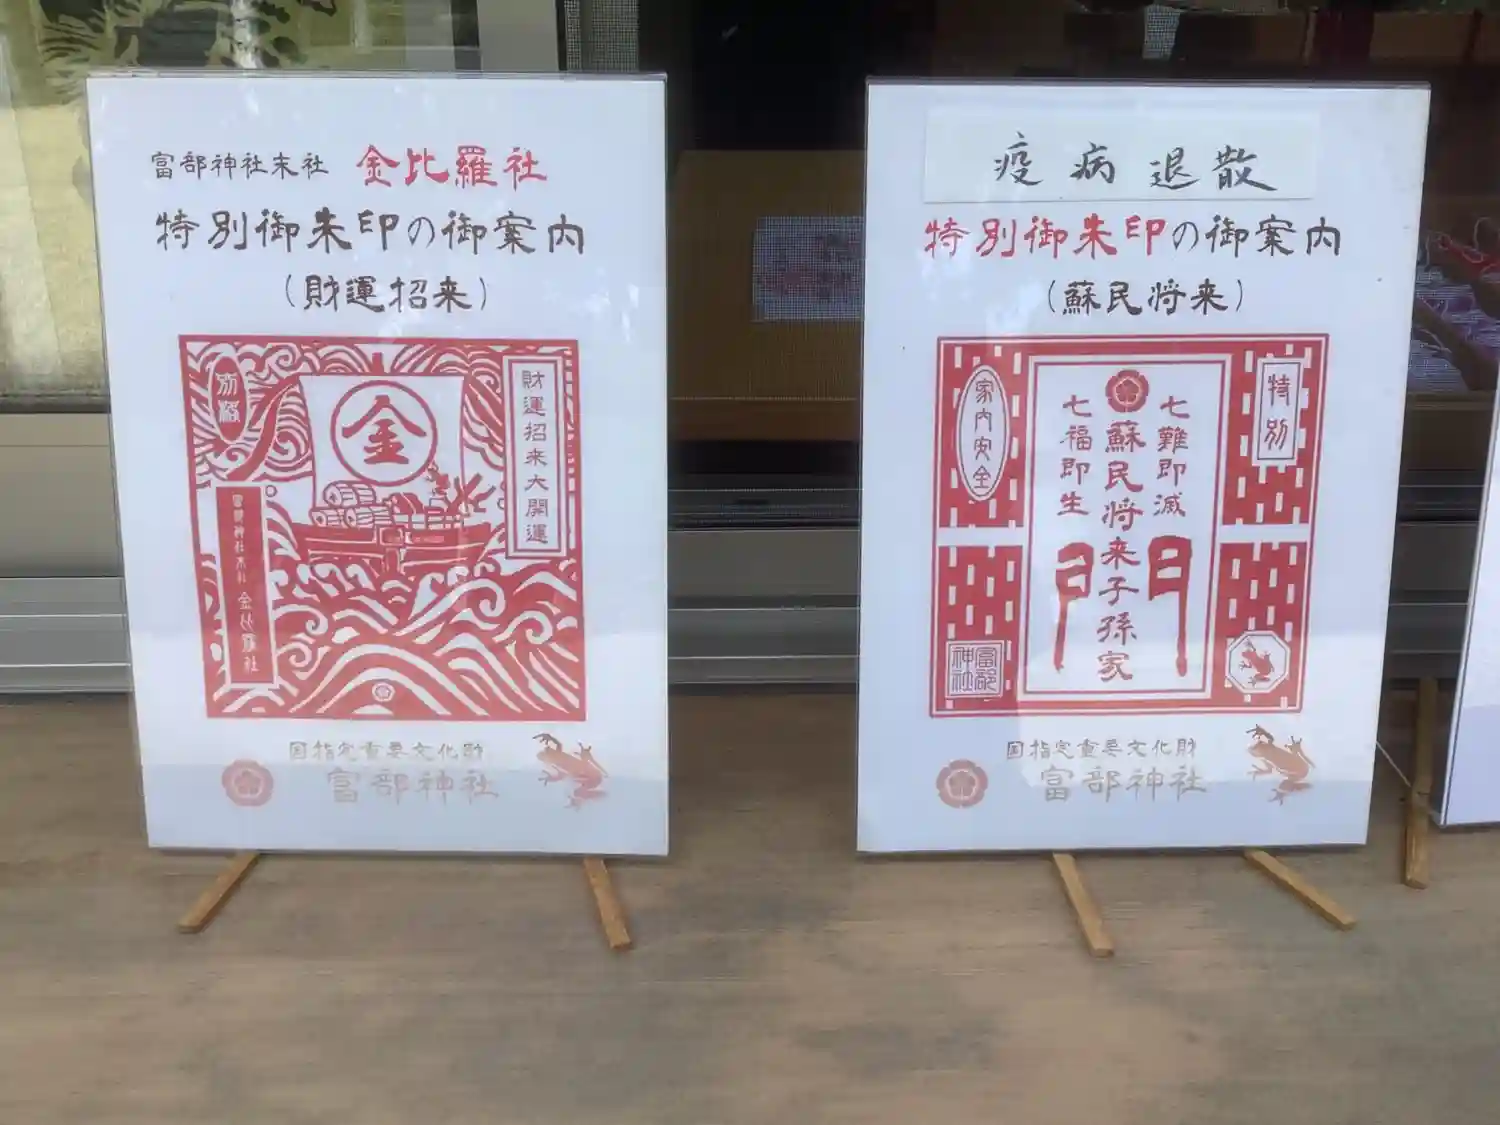 富部神社末社 金比羅社
特別御朱印の御案内
(財運招来)
別格
金
財運招来大開運
富部神社末社 金比羅社
国指定重要文化財
富部神社
疫病退散
特別御朱印の御案内
(蘇民将来)
特別
七難即滅
蘇民将来子孫家
七福即生
門
家内安全
富部神社
国指定重要文化財
富部神社